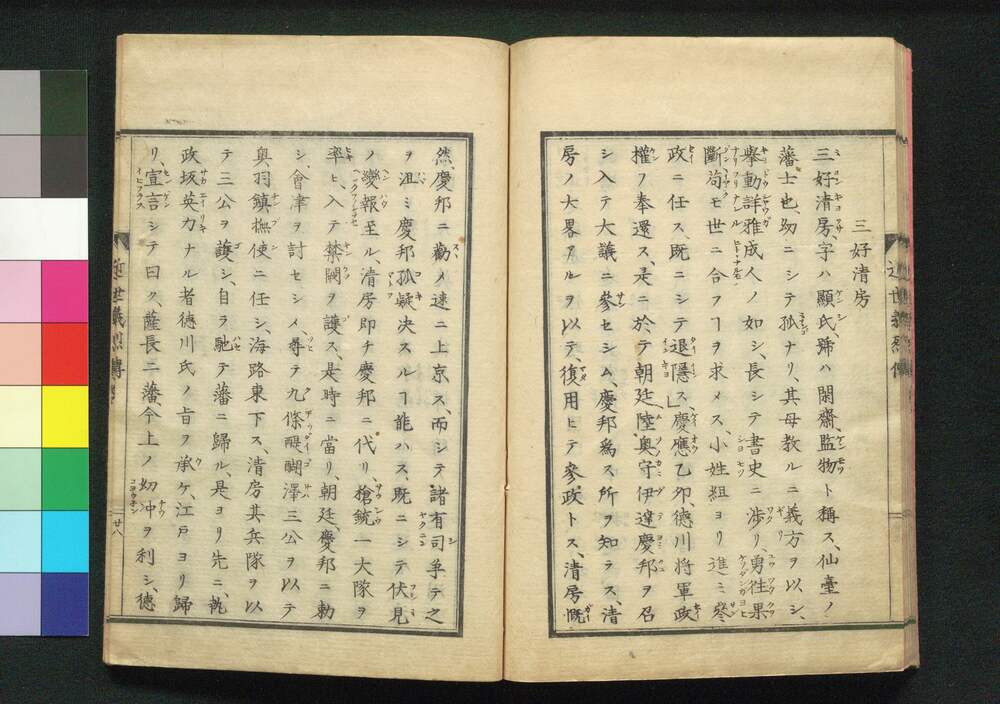 三好清房
三好清房字ハ顯民號ハ閑齋、監物ト稱ス、仙臺ノ
藩士也、幼ニシテ孤ナリ、其母教ルニ義方ヲ以シ、
擧動詳雅成人ノ如シ、長シテ書史ニ渉リ、勇往果
斷苟モ世ニ合フヿヲ求メス、小姓組ヨリ進ミ參
政ニ任ス、既ニシテ退隱ス」慶應乙卯、德川將軍政
權ヲ奉還ス、是ニ於テ朝廷陸奥守伊達慶邦ヲ召
シ入テ大議ニ參セシム、慶邦爲ス所ヲ知ラス、清
房ノ大畧アルヲ以テ、復用ヒテ參政トス、清房慨
然、慶邦ニ勸メ速ニ上京ス、而シテ諸有司爭テ之
ヲ沮ミ慶邦孤疑決スルヿ能ハス、既ニシテ伏見
ノ變報至ル、清房即チ慶邦ニ代リ、搶銃一大隊ヲ
率ヒ、入テ禁闕ヲ護ス、是時ニ當リ、朝廷、慶邦ニ勅
シ、會津ヲ討セシメ、尋テ九條醍醐澤三公ヲ以テ
奥羽鎮撫使ニ任シ、海路東下ス、清房其兵隊ヲ以
テ三公ヲ護シ、自ラ馳テ藩ニ歸ル、是ヨリ先ニ、執
政坂英力ナル者德川氏ノ旨ヲ承ケ、江戸ヨリ歸
リ、宣言シテ曰ク、薩長二藩、今上ノ幼冲ヲ利シ、德
近世義烈傳
廿八